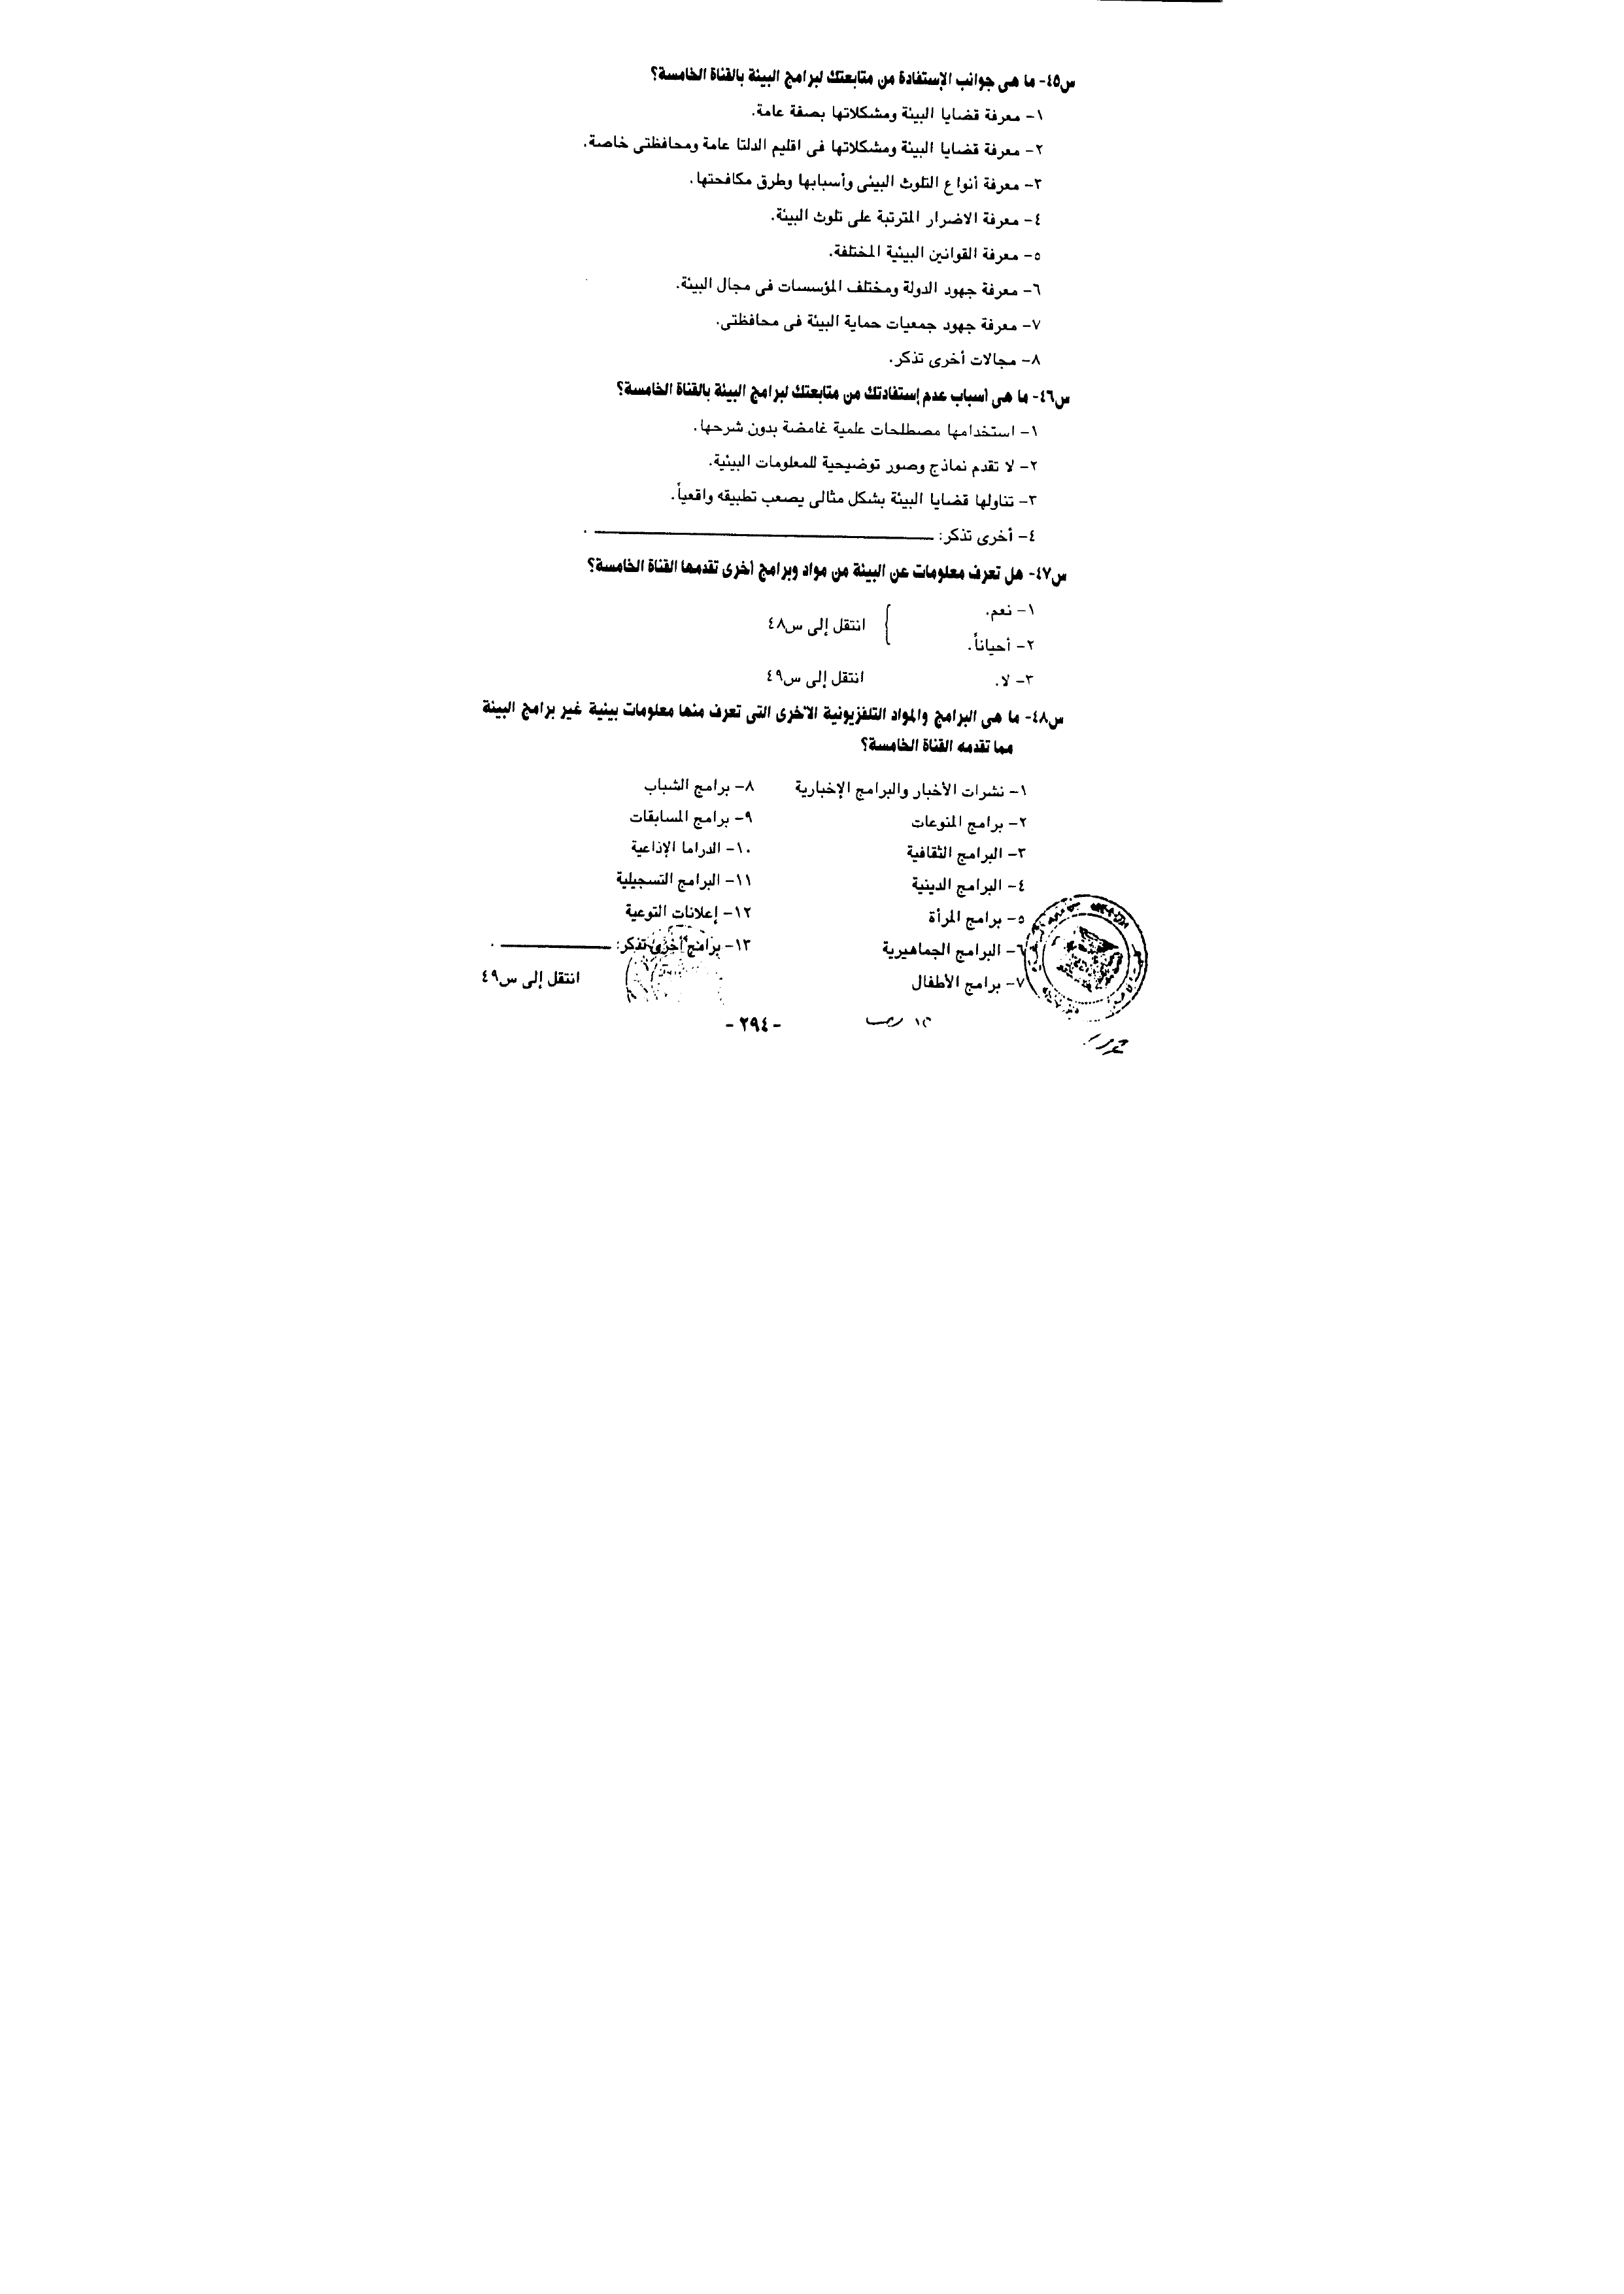 س٤٥- ما هى جوانب الإستفادة من متابعتك لبرامج البيئة بالقناة الخامسة؟
١- معرفة قضايا البيئة ومشكلاتها بصفة عامة.
٢- معرفة قضايا البيئة ومشكلاتها فى اقليم الدلتا عامة ومحافظتى خاصة.
٣- معرفة أنواع التلوث البيئى وأسبابها وطرق مكافحتها.
٤- معرفة الاضرار المترتبة على تلوث البيئة.
٥- معرفة القوانين البيئية المختلفة.
٦- معرفة جهود الدولة ومختلف المؤسسات فى مجال البيئة.
٧- معرفة جهود جمعيات حماية البيئة فى محافظتى.
٨- مجالات أخرى تذكر.
س٤٦- ما هى أسباب عدم إستفادتك من متابعتك لبرامج البيئة بالقناة الخامسة؟
١- استخدامها مصطلحات علمية غامضة بدون شرحها.
٢- لا تقدم نماذج وصور توضيحية للمعلومات البيئية.
٣- تناولها قضايا البيئة بشكل مثالى يصعب تطبيقه واقعياً.
٤- أخرى تذكر: ـــــــــــــــــــــــــ .
س٤٧- هل تعرف معلومات عن البيئة من مواد وبرامج أخرى تقدمها القناة الخامسة؟
١- نعم.
انتقل إلى س٤٨
٢- أحياناً.
٣- لا. انتقل إلى س٤٩
س٤٨- ما هى البرامج والمواد التلفزيونية الأخرى التى تعرف منها معلومات بيئية غير برامج البيئة
مما تقدمه القناة الخامسة؟
١- نشرات الأخبار والبرامج الإخبارية ٨- برامج الشباب
٢- برامج المنوعات ٩- برامج المسابقات
٣- البرامج الثقافية ١٠- الدراما الإذاعية
٤- البرامج الدينية ١١- البرامج التسجيلية
٥- برامج المرأة ١٢- إعلانات التوعية
٦- البرامج الجماهيرية ١٣- برامج أخرى تذكر: ــــــــــــــ .
٧- برامج الأطفال انتقل إلى س٤٩
- ٢٩٤ -